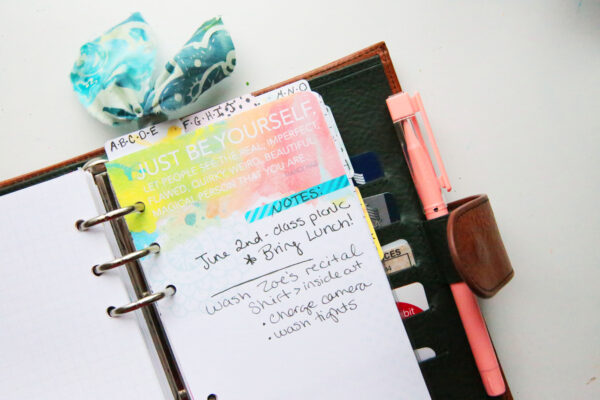 A·B·C·D·E
F·G·H·I·J
·M·N·O
JUST BE YOURSELF,
LET PEOPLE SEE THE REAL, IMPERFECT,
FLAWED, QUIRKY, WEIRD, BEAUTIFUL,
MAGICAL PERSON THAT YOU ARE.
NOTES:
June 2nd - class picnic
* Bring Lunch!
Wash Zoe's recital
Shirt > inside out
• charge camera
• wash tights